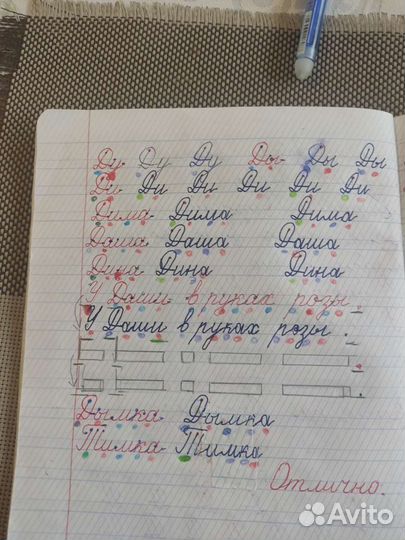 Ду Ду Ду Ды Ды Ды
Ди Ди Ди Ди Ди Ди
Дима Дима Дима
Даша Даша Даша
Дина Дина Дина
У Даши в руках розы.
У Даши в руках розы.
Дымка Дымка
Тимка Тимка
Отлично.
Avito